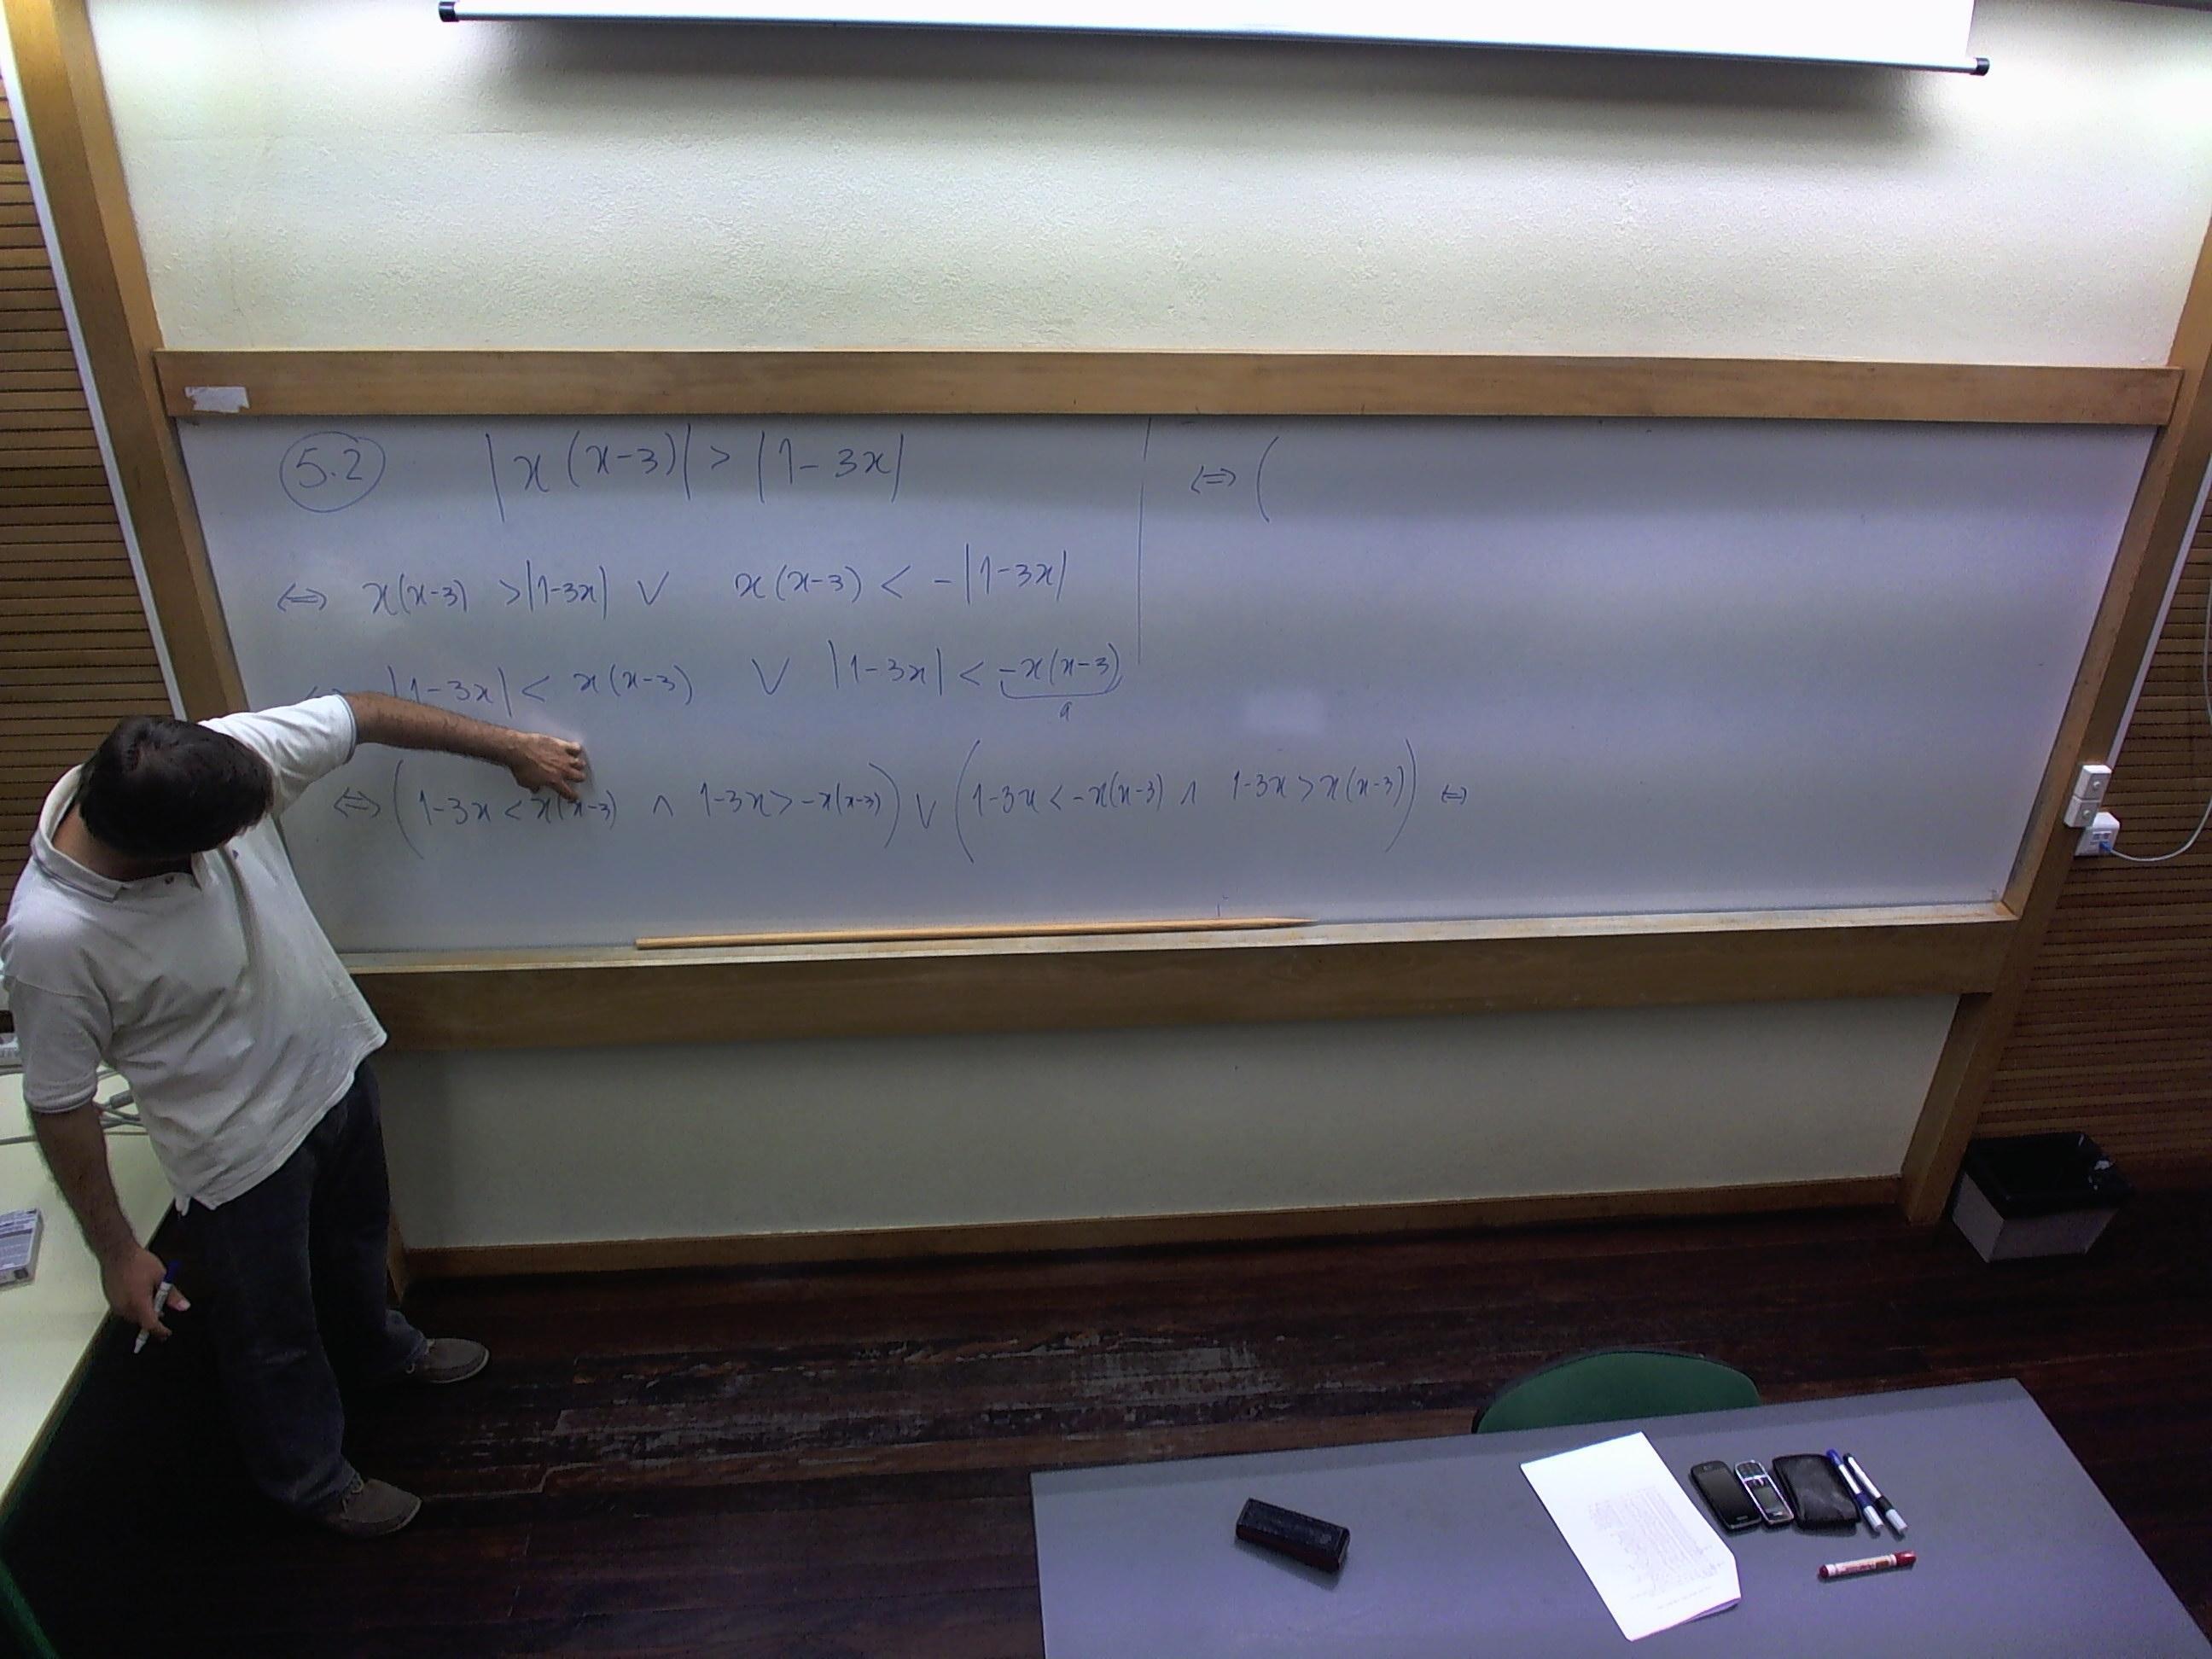 5.2 |x(x-3)| > |1-3x|
⇔ x(x-3) > |1-3x| ∨ x(x-3) < -|1-3x|
|1-3x| < x(x-3) ∨ |1-3x| < -x(x-3)
a
⇔ (1-3x < x(x-3) ∧ 1-3x > -x(x-3)) ∨ (1-3x < -x(x-3) ∧ 1-3x > x(x-3)) ⇔
⇔ (